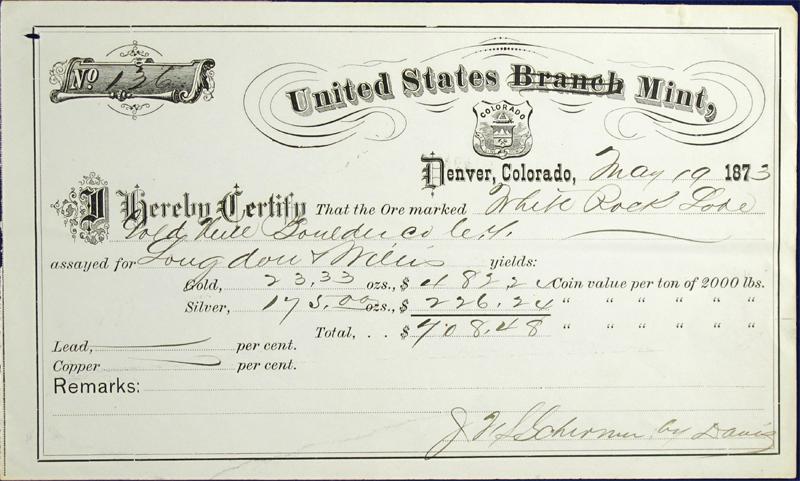 No 136
United States Branch Mint,
COLORADO
Denver, Colorado, May 19 1873
I Hereby Certify That the Ore marked White Rock Lode
Gold Hill Boulder Co C.T.
assayed for Longdon & Willis yields:
Gold, 23.33 ozs., $ 482.24 Coin value per ton of 2000 lbs.
Silver, 175.00 ozs., $ 226.24 " " " " " "
Total, . . $ 708.48 " " " " " "
Lead, per cent.
Copper per cent.
Remarks:
J F L Schirmer by Davis